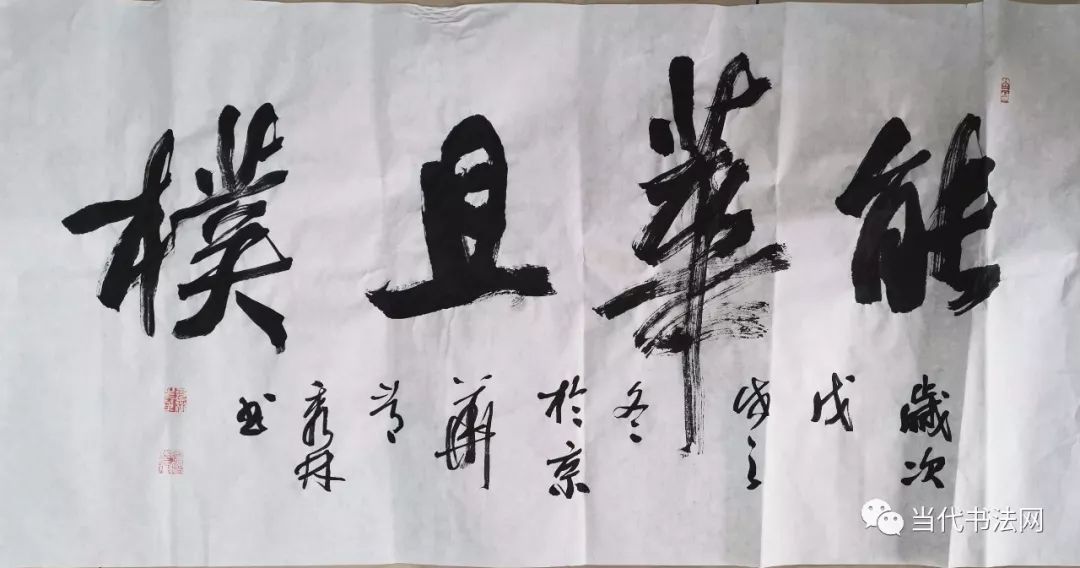 能華且樸
歲次戊戌之冬於京華秀林书
当代书法网